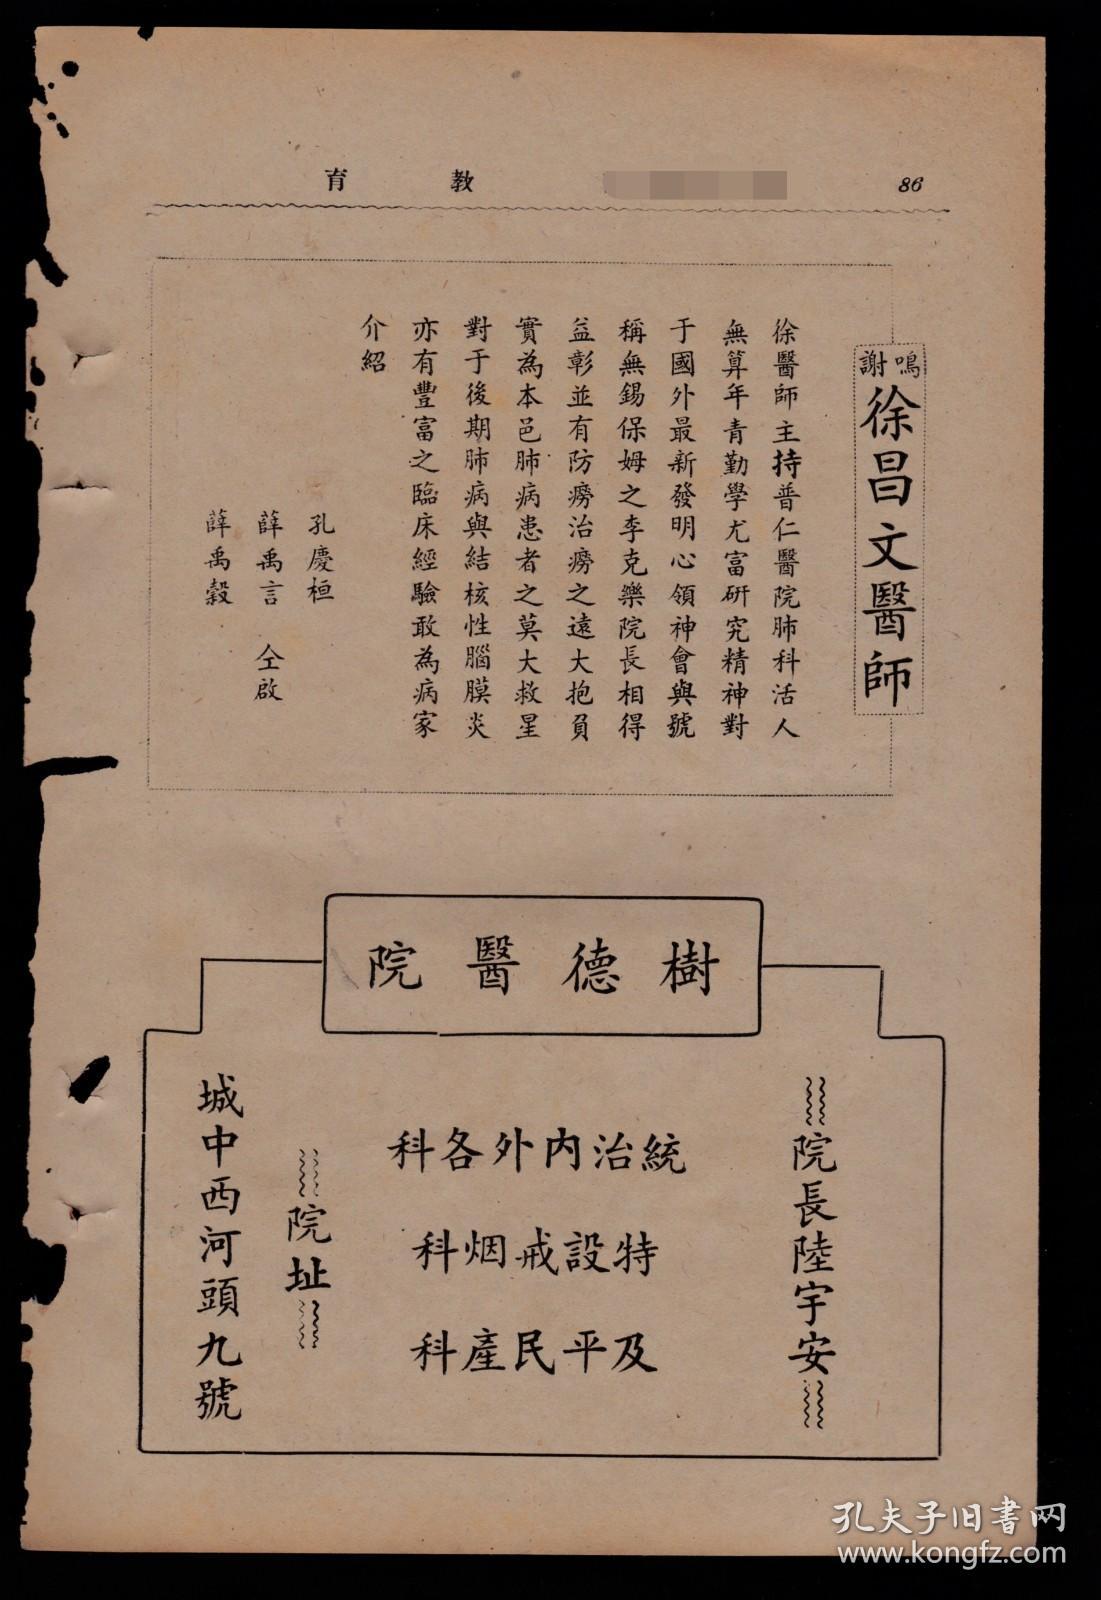 86
教育
鳴謝
徐昌文醫師
徐醫師主持普仁醫院肺科活人
無算年青勤學尤富研究精神對
于國外最新發明心領神會與號
稱無錫保姆之李克樂院長相得
益彰並有防癆治癆之遠大抱負
實為本邑肺病患者之莫大救星
對于後期肺病與結核性腦膜炎
亦有豐富之臨床經驗敢為病家
介紹
孔慶桓
薛禹言 仝啟
薛禹穀
樹德醫院
院長陸宇安
統治內外各科
特設戒烟科
及平民產科
院址
城中西河頭九號
孔夫子旧书网
www.kongfz.com